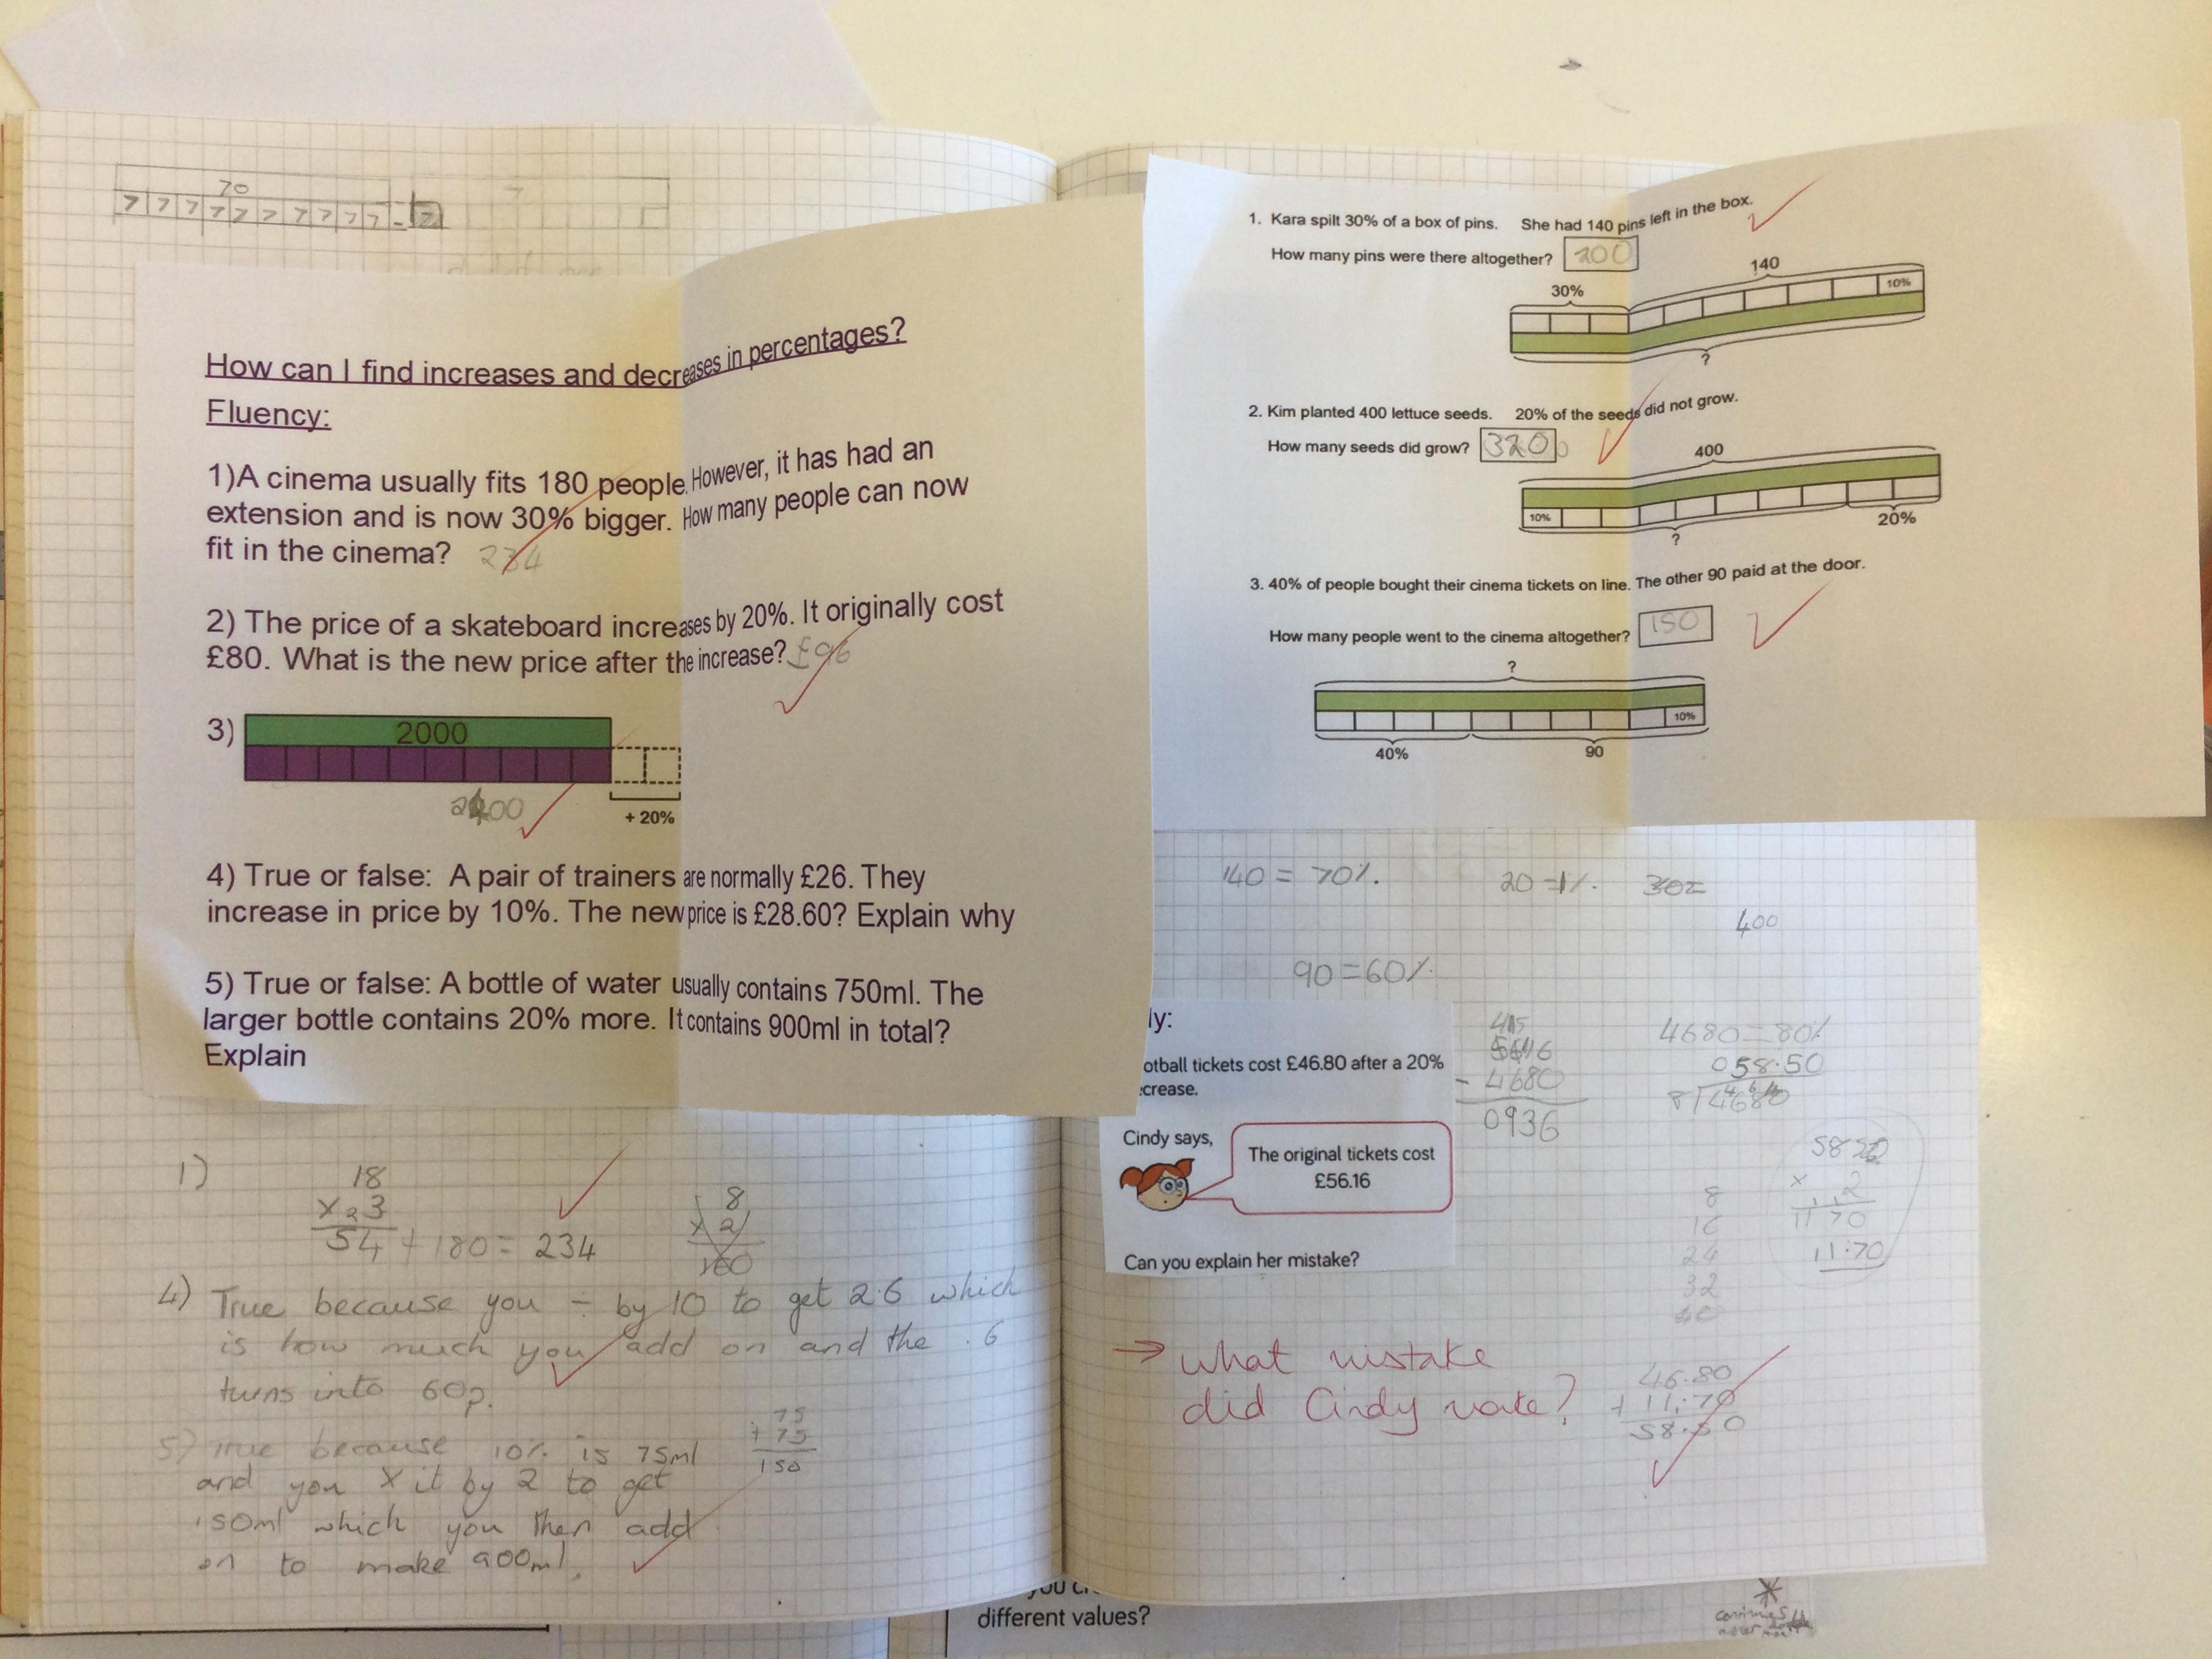 70
7 7 7 7 7 7 7 7 7 7 - 7
How can I find increases and decreases in percentages?
Fluency:
1)A cinema usually fits 180 people. However, it has had an
extension and is now 30% bigger. How many people can now
fit in the cinema? 234
2) The price of a skateboard increases by 20%. It originally cost
£80. What is the new price after the increase? £96
3)
2000
2400
+ 20%
4) True or false: A pair of trainers are normally £26. They
increase in price by 10%. The new price is £28.60? Explain why
5) True or false: A bottle of water usually contains 750ml. The
larger bottle contains 20% more. It contains 900ml in total?
Explain
1)
18
x 3
54 + 180 = 234
8
x 2
160
4) True because you ÷ by 10 to get 2.6 which
is how much you add on and the .6
turns into 60p.
5) True because 10% is 75ml
and you x it by 2 to get
150ml which you then add
on to make 900ml.
75
+ 75
150
1. Kara spilt 30% of a box of pins. She had 140 pins left in the box.
How many pins were there altogether? 200
140
30%
10%
?
2. Kim planted 400 lettuce seeds. 20% of the seeds did not grow.
How many seeds did grow? 320
400
10%
20%
?
3. 40% of people bought their cinema tickets on line. The other 90 paid at the door.
How many people went to the cinema altogether? 150
?
10%
40%
90
140 = 70%.
20 = 1%.
30=
400
90=60%.
ly:
otball tickets cost £46.80 after a 20%
crease.
Cindy says,
The original tickets cost
£56.16
Can you explain her mistake?
- 4680
0936
4680=80%
058.50
8 4680
x 2
11 70
11.70
8
16
24
32
40
→ what mistake
did Cindy make?
46.80
+ 11.70
58.50
different values?